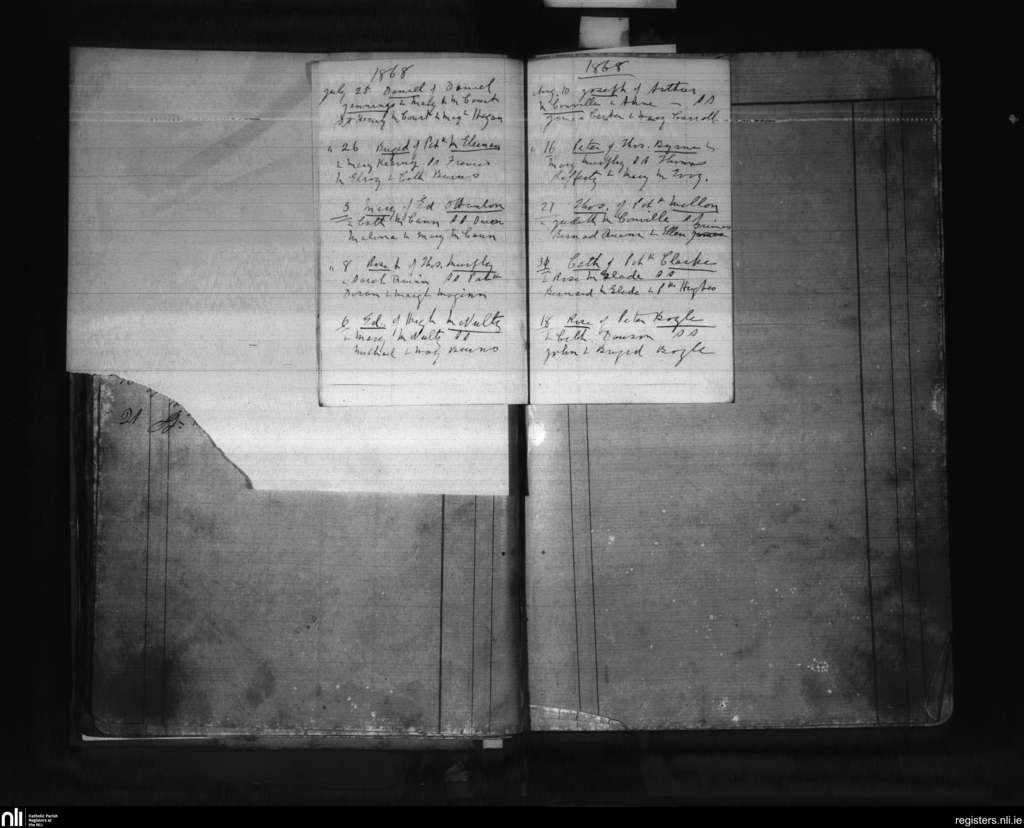 1868
July 25 Daniel of Daniel
Jennings & Mary McCourt
SS Henry McCourt & Magt Hagan
" 26 Brigid of Patk
& Mary Kearny SS Francis
McElroy & Cath Burns
3 Mary of Ed O'Hanlon
& Cath McCann SS Owen
& Mary McCann
" 8 Rose of Thos. Murphy
& Sarah SS Patk
Doran & Margt Maginn
6 Ed. of Hugh McNulty
& Mary McNulty SS
Michael & Mary Burns
1868
Aug. 10 Joseph of Arthur
McConville & Anne — SS
James & Mary Carroll
" 16 Peter of Thos. Byrne &
Mary Murphy SS Thomas
Rafferty & Mary McEvoy.
21 Thos. of Patk Mellon
& Judith McConville SS
Bernard & Ellen
Cath of Patk Clarke
& Rose McGlade SS
Bernard McGlade & Hughes
18 Rose of Peter Bogle
& Cath. Dawson SS
John & Brigid Bogle
21
nli
Catholic Parish
Registers at
the NLI
registers.nli.ie